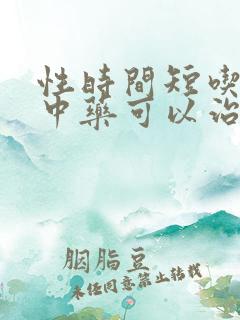 性時間短喫
中藥可以治
胭脂豆
未任同意禁止转載